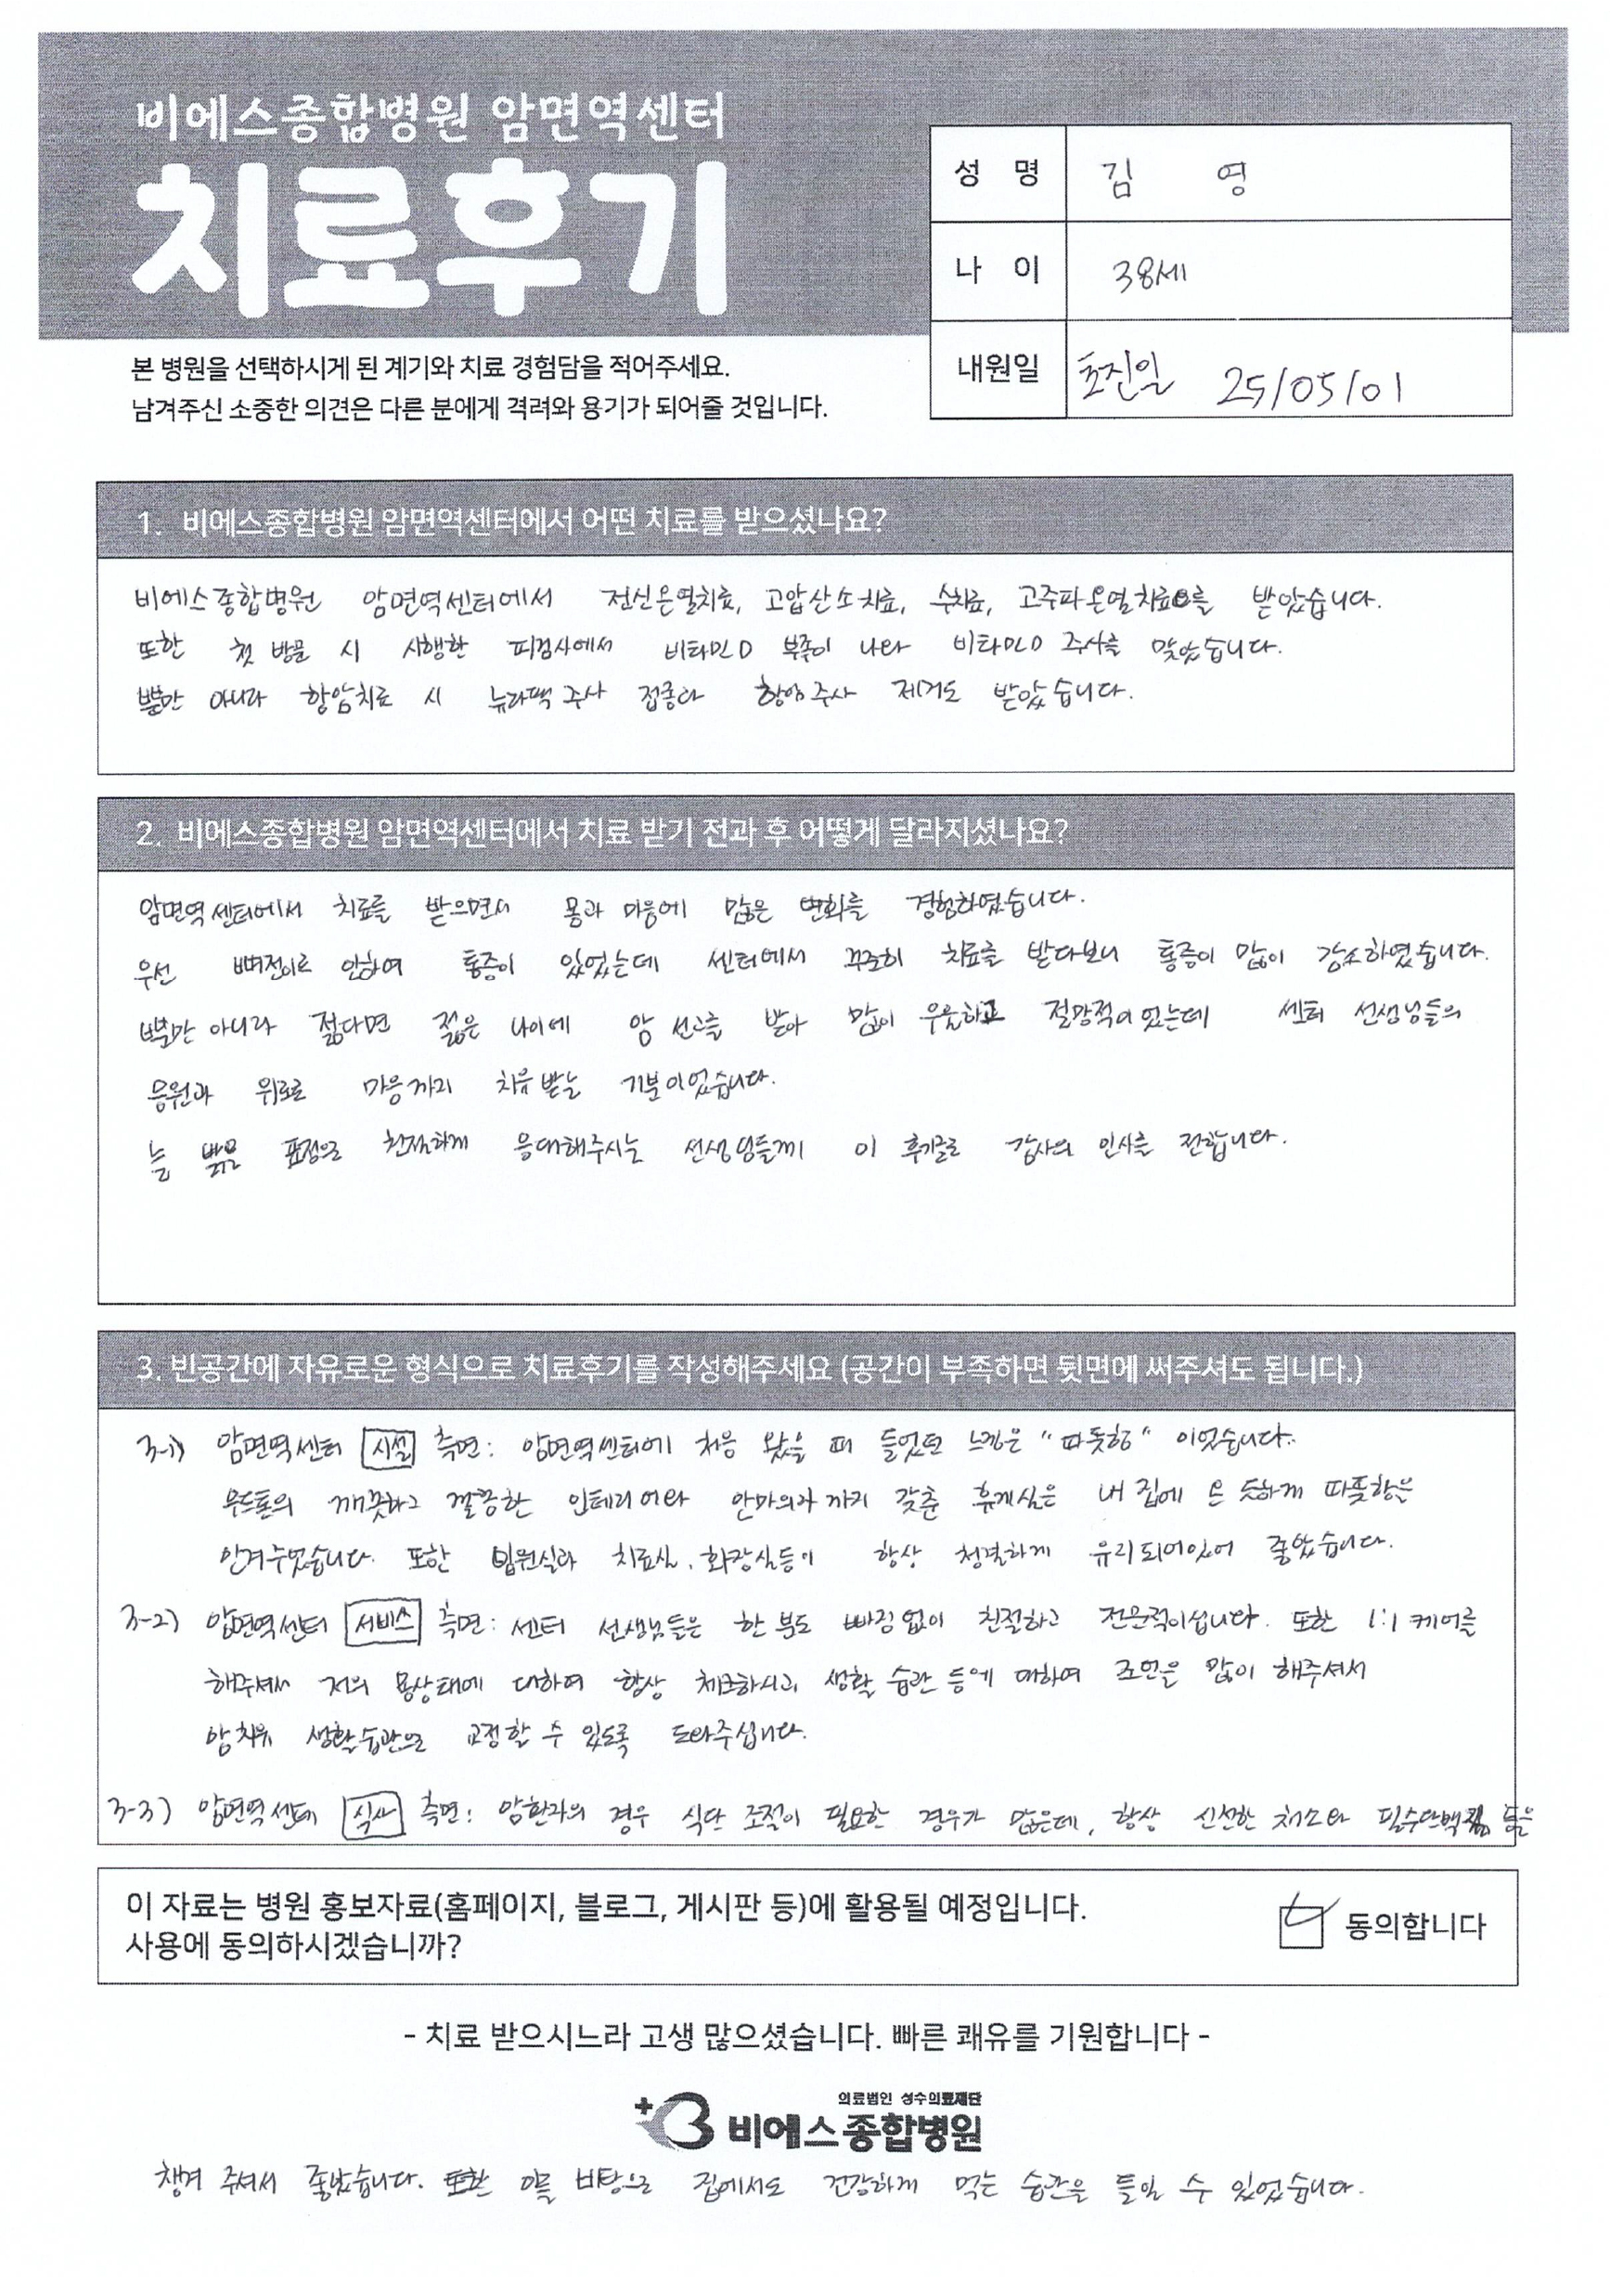 비에스종합병원 암면역센터
치료후기
성 명 김 영
나 이 38세
내원일 초진일 25/05/01
본 병원을 선택하시게 된 계기와 치료 경험담을 적어주세요.
남겨주신 소중한 의견은 다른 분에게 격려와 용기가 되어줄 것입니다.
1. 비에스종합병원 암면역센터에서 어떤 치료를 받으셨나요?
비에스종합병원 암면역센터에서 전신온열치료, 고압산소치료, 수치료, 고주파온열치료를 받았습니다.
또한 첫 방문 시 시행한 피검사에서 비타민D 부족이 나와 비타민D 주사를 맞았습니다.
뿐만 아니라 항암치료 시 뉴라펙 주사 접종과 항암주사 제거도 받았습니다.
2. 비에스종합병원 암면역센터에서 치료 받기 전과 후 어떻게 달라지셨나요?
암면역센터에서 치료를 받으면서 몸과 마음에 많은 변화를 경험하였습니다.
우선 뼈전이로 인하여 통증이 있었는데 센터에서 꾸준히 치료를 받다보니 통증이 많이 감소하였습니다.
뿐만 아니라 젊다면 젊은 나이에 암 선고를 받아 많이 우울하고 절망적이었는데 센터 선생님들의
응원과 위로로 마음까지 치유 받는 기분이었습니다.
늘 밝은 표정으로 친절하게 응대해주시는 선생님들께 이 후기글로 감사의 인사를 전합니다.
3. 빈공간에 자유로운 형식으로 치료후기를 작성해주세요 (공간이 부족하면 뒷면에 써주셔도 됩니다.)
3-1) 암면역센터 시설 측면: 암면역센터에 처음 왔을 때 들었던 느낌은 "따뜻함" 이었습니다.
우드톤의 깨끗하고 깔끔한 인테리어와 안마의자까지 갖춘 휴게실은 내 집에 온 듯하게 따뜻함을
안겨주었습니다. 또한 입원실과 치료실, 화장실등이 항상 청결하게 유리되어있어 좋았습니다.
3-2) 암면역센터 서비스 측면: 센터 선생님들은 한 분도 빠짐없이 친절하고 전문적이십니다. 또한 1:1 케어를
해주셔서 저의 몸상태에 대하여 항상 체크하시고, 생활 습관 등에 대하여 조언을 많이 해주셔서
암치유 생활습관으로 교정할 수 있도록 도와주십니다.
3-3) 암면역센터 식사 측면: 암환자의 경우 식단 조절이 필요한 경우가 많은데, 항상 신선한 채소와 필수단백질 등을
이 자료는 병원 홍보자료(홈페이지, 블로그, 게시판 등)에 활용될 예정입니다.
사용에 동의하시겠습니까?
동의합니다
- 치료 받으시느라 고생 많으셨습니다. 빠른 쾌유를 기원합니다 -
의료법인 성수의료재단
비에스종합병원
챙겨 주셔서 좋았습니다. 또한 이를 바탕으로 집에서도 건강하게 먹는 습관을 들일 수 있었습니다.